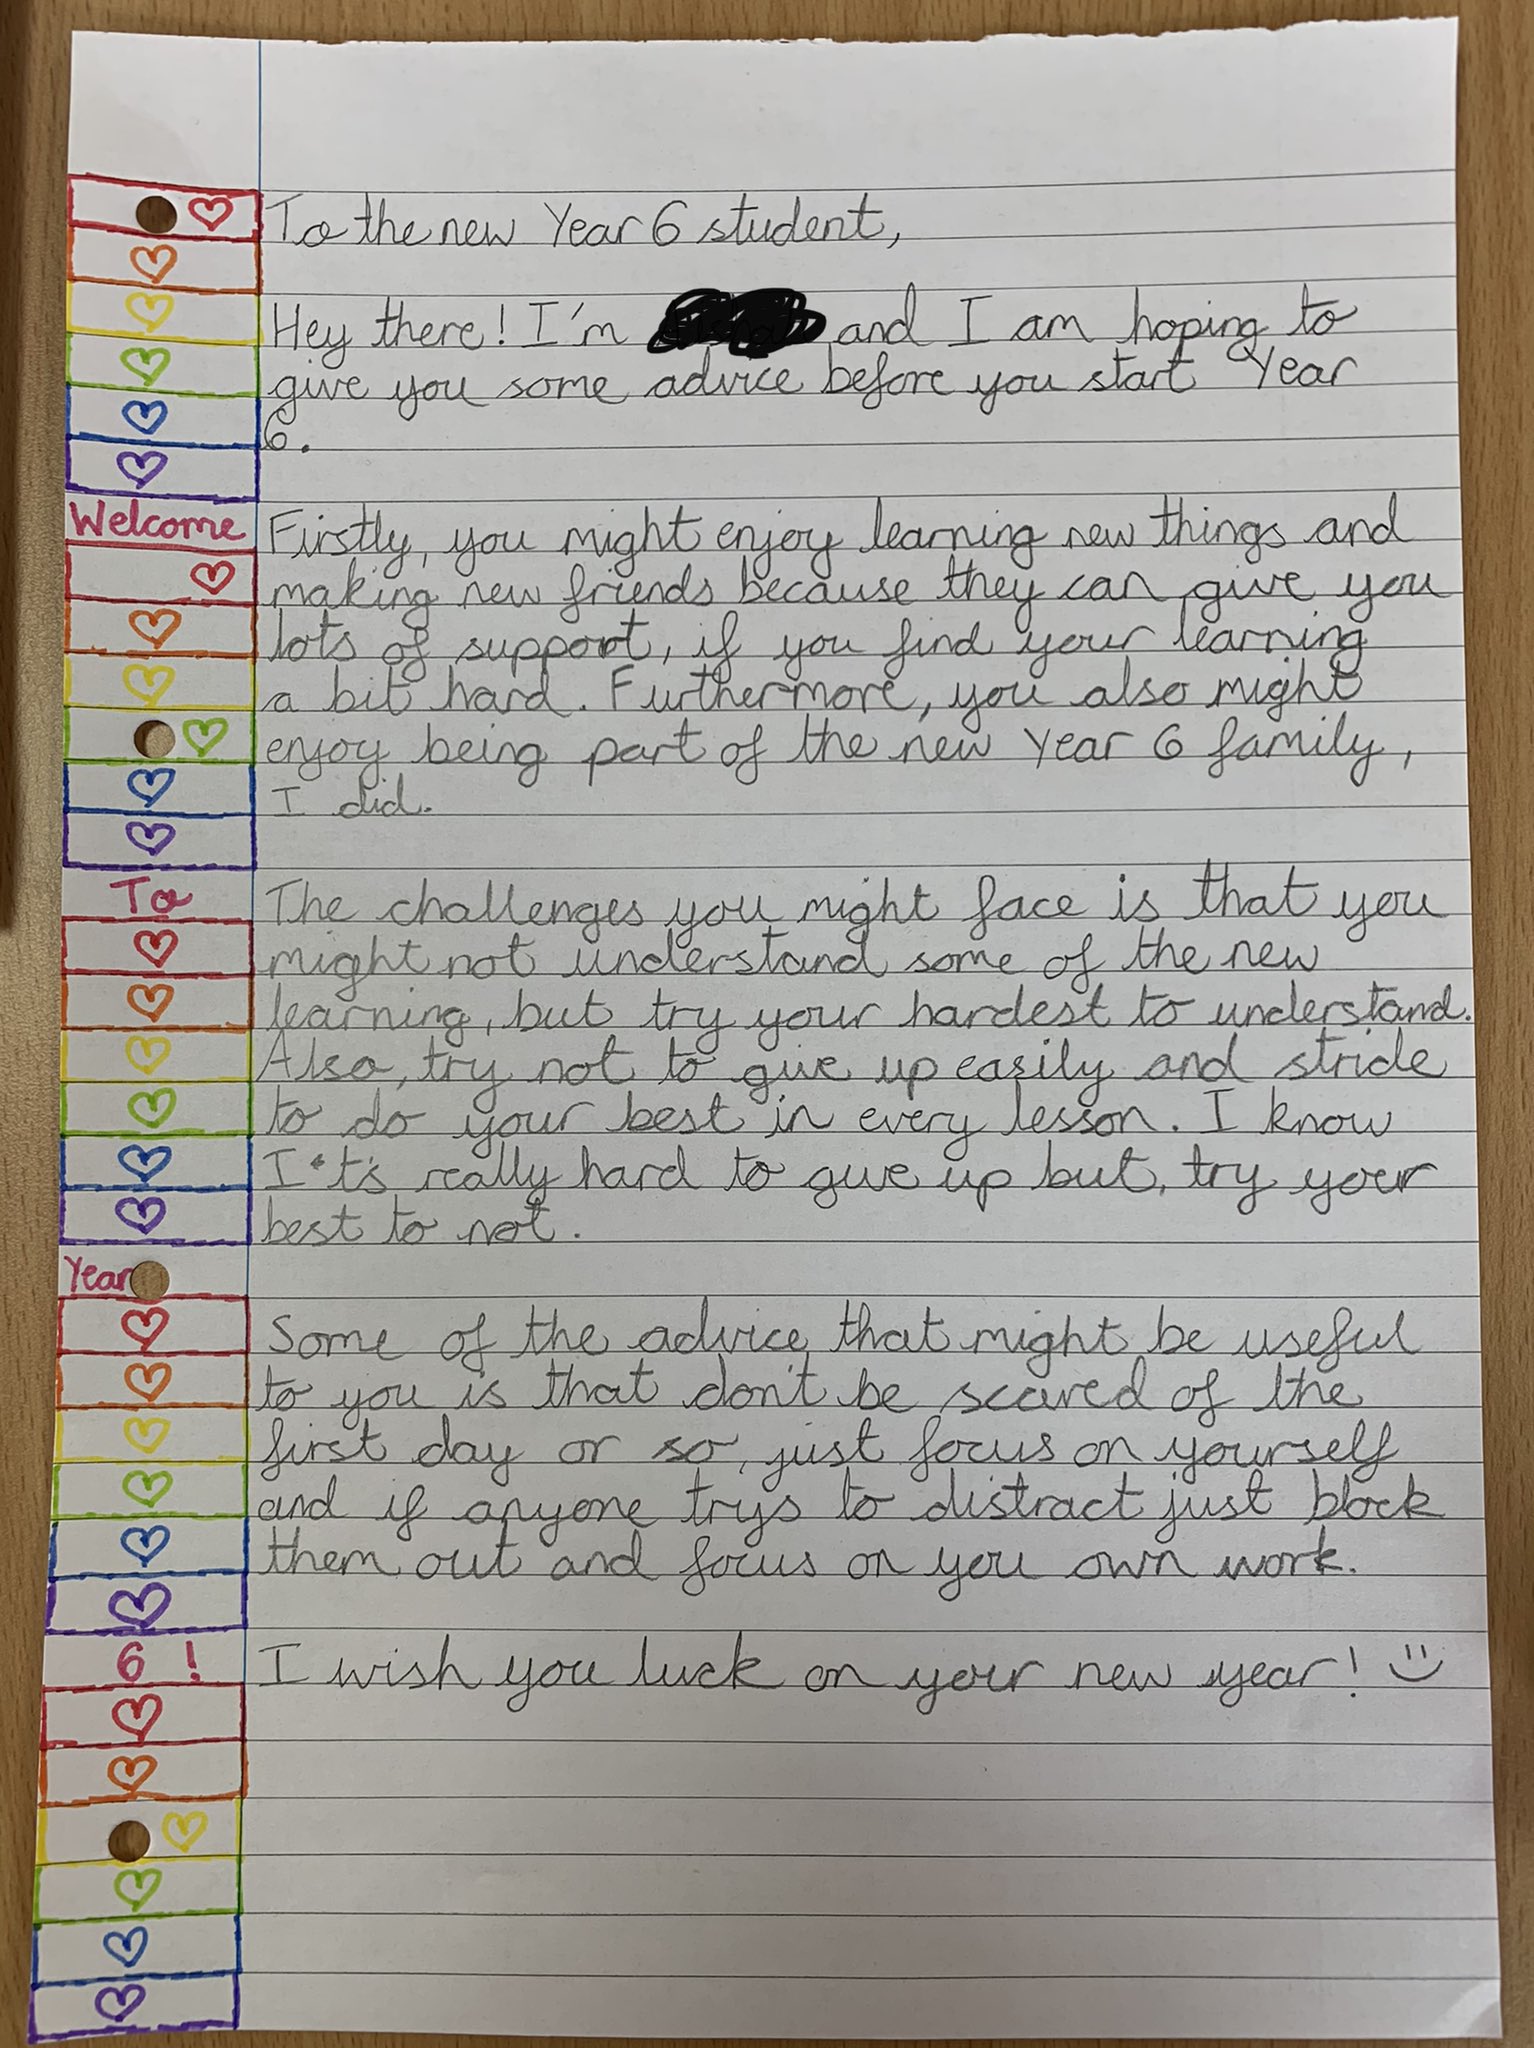 To the new Year 6 student,
Hey there! I'm and I am hoping to
give you some advice before you start Year
6.
Welcome
Firstly, you might enjoy learning new things and
making new friends because they can give you
lots of support, if you find your learning
a bit hard. Furthermore, you also might
enjoy being part of the new Year 6 family,
I did.
To
The challenges you might face is that you
might not understand some of the new
learning, but try your hardest to understand.
Also, try not to give up easily and stride
to do your best in every lesson. I know
It's really hard to give up but, try your
best to not.
Year
Some of the advice that might be useful
to you is that don't be scared of the
first day or so, just focus on yourself
and if anyone trys to distract just block
them out and focus on you own work.
6 !
I wish you luck on your new year! :)